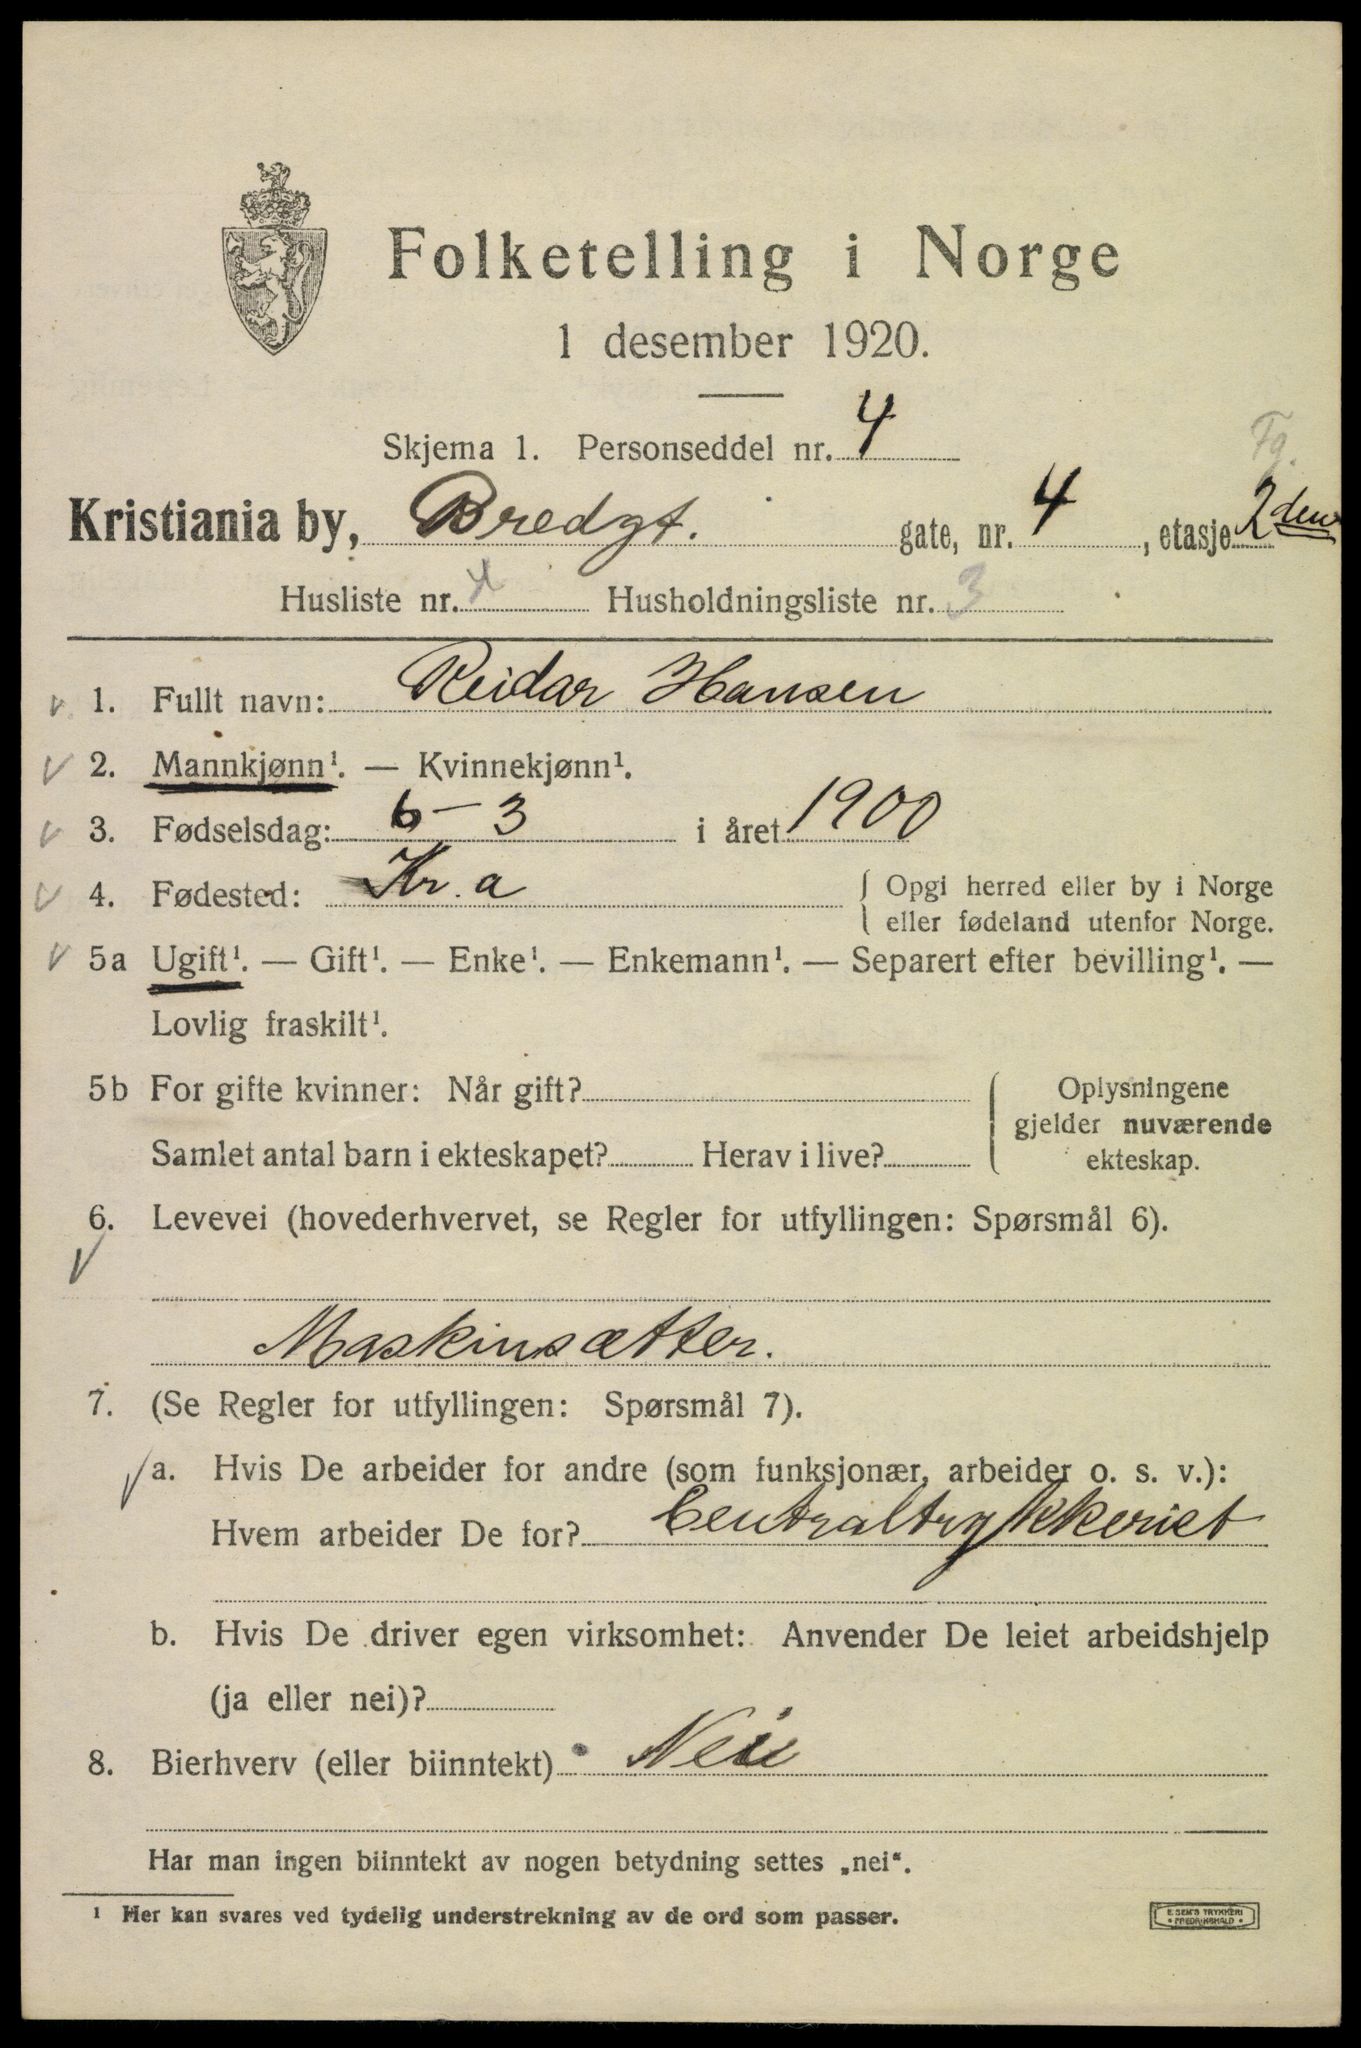 Folketelling i Norge
1 desember 1920.
Skjema 1. Personseddel nr. 4
Fg.
Kristiania by, Bredgt. gate, nr. 4, etasje 2den
Husliste nr. 4 Husholdningsliste nr. 3
1. Fullt navn: Reidar Hansen
2. Mannkjønn¹. — Kvinnekjønn¹.
3. Fødselsdag: 6-3 i året 1900
4. Fødested: Kr.a { Opgi herred eller by i Norge
eller fødeland utenfor Norge.
5a Ugift¹. — Gift¹. — Enke¹. — Enkemann¹. — Separert efter bevilling¹. —
Lovlig fraskilt¹.
5b For gifte kvinner: Når gift? { Oplysningene
gjelder nuværende
Samlet antal barn i ekteskapet? Herav i live? ekteskap.
6. Levevei (hovederhvervet, se Regler for utfyllingen: Spørsmål 6).
Maskinsætter.
7. (Se Regler for utfyllingen: Spørsmål 7).
a. Hvis De arbeider for andre (som funksjonær, arbeider o. s. v.):
Hvem arbeider De for? Centraltrykkeriet
b. Hvis De driver egen virksomhet: Anvender De leiet arbeidshjelp
(ja eller nei)?
8. Bierhverv (eller biinntekt) Nei
Har man ingen biinntekt av nogen betydning settes „nei“.
¹ Her kan svares ved tydelig understrekning av de ord som passer.
E. SEM'S TRYKKERI
• FREDRIKSHALD •